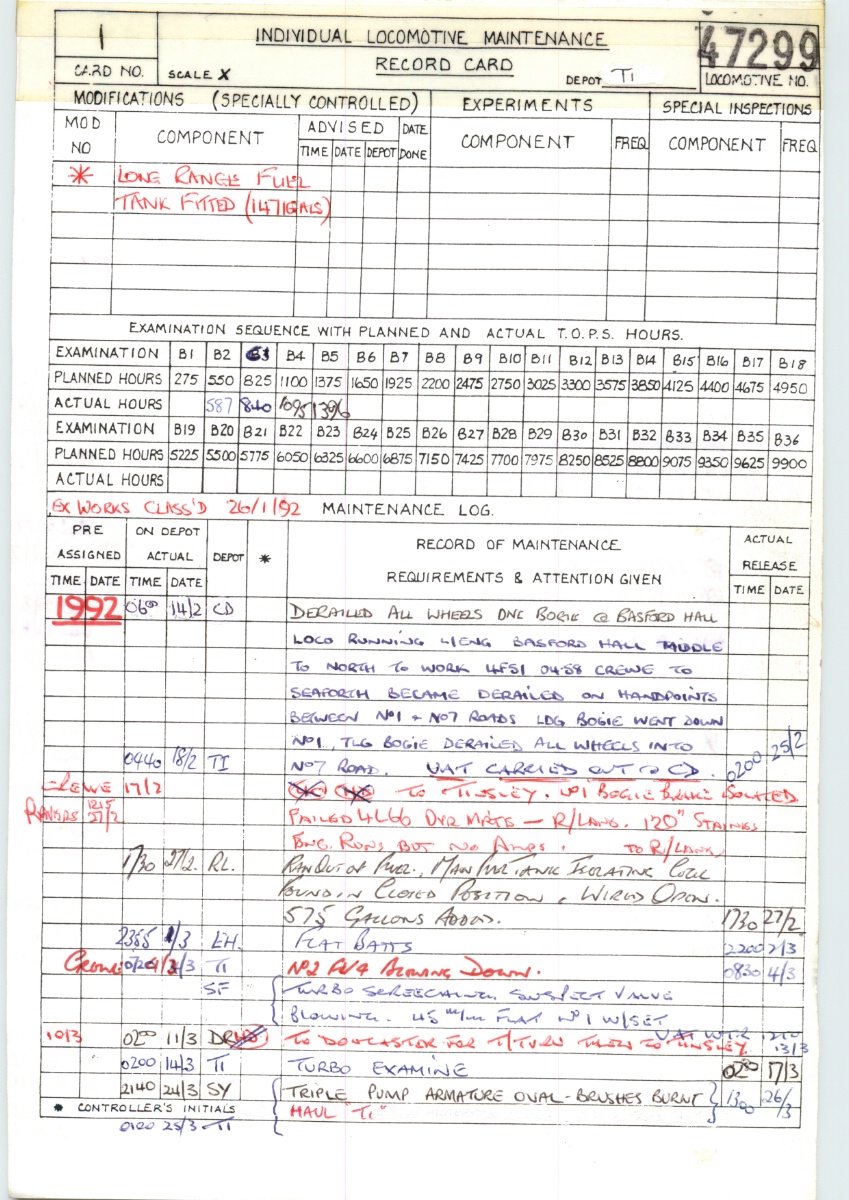 1 INDIVIDUAL LOCOMOTIVE MAINTENANCE 47299
CARD NO. SCALE X RECORD CARD DEPOT TI LOCOMOTIVE NO.
MODIFICATIONS (SPECIALLY CONTROLLED) EXPERIMENTS SPECIAL INSPECTIONS
MOD NO COMPONENT ADVISED DATE DONE COMPONENT FREQ COMPONENT FREQ
TIME DATE DEPOT
* LONG RANGE FUEL
TANK FITTED (1471GALS)
EXAMINATION SEQUENCE WITH PLANNED AND ACTUAL T.O.P.S. HOURS.
EXAMINATION B1 B2 B4 B5 B6 B7 B8 B9 B10 B11 B12 B13 B14 B15 B16 B17 B18
PLANNED HOURS 275 550 825 1100 1375 1650 1925 2200 2475 2750 3025 3300 3575 3850 4125 4400 4675 4950
ACTUAL HOURS 587 840 1095 1396
EXAMINATION B19 B20 B21 B22 B23 B24 B25 B26 B27 B28 B29 B30 B31 B32 B33 B34 B35 B36
PLANNED HOURS 5225 5500 5775 6050 6325 6600 6875 7150 7425 7700 7975 8250 8525 8800 9075 9350 9625 9900
ACTUAL HOURS
EX WORKS CLASS'D 26/1/92 MAINTENANCE LOG.
PRE ASSIGNED ON DEPOT ACTUAL DEPOT * RECORD OF MAINTENANCE ACTUAL RELEASE
TIME DATE TIME DATE REQUIREMENTS & ATTENTION GIVEN TIME DATE
1992 0600 14/2 CD DERAILED ALL WHEELS ONE BOGIE @ BASFORD HALL
LOCO RUNNING L/ENG BASFORD HALL MIDDLE
TO NORTH TO WORK 4F51 04.58 CREWE TO
SEAFORTH BECAME DERAILED ON HANDPOINTS
BETWEEN No1 & No7 ROADS LDG BOGIE WENT DOWN
No1, TLG BOGIE DERAILED ALL WHEELS INTO
0440 18/2 TI No7 ROAD. UAT CARRIED OUT @ CD. 0200 25/2
CREWE 17/2 TO TINSLEY. No1 BOGIE BRAKE ISOLATED
1215 27/2 FAILED 4L66 — R/LANG. 120"
ENG. RUNS BUT NO AMPS. TO R/LANG
1730 27/2. RL. RAN OUT OF FUEL, MAIN FUEL TANK ISOLATING COCK
FOUND IN CLOSED POSITION, WIRED OPEN.
575 GALLONS ADDED. 1730 27/2
2355 1/3 EH. FLAT BATTS 2200 2/3
TI No2 BLOWING DOWN. 0830 4/3
SF TURBO SCREECHING SUSPECT VALVE
BLOWING. 45 m/m FLAT No1 W/SET
UAT WTR
10/3 0200 11/3 DR TO DONCASTER FOR T/TURN THEN TO TINSLEY 13/3
0200 14/3 TI TURBO EXAMINE 17/3
2140 24/3 SY TRIPLE PUMP ARMATURE OVAL - BRUSHES BURNT 1300 26/3
* CONTROLLER'S INITIALS HAUL "TI"
0120 25/3 TI